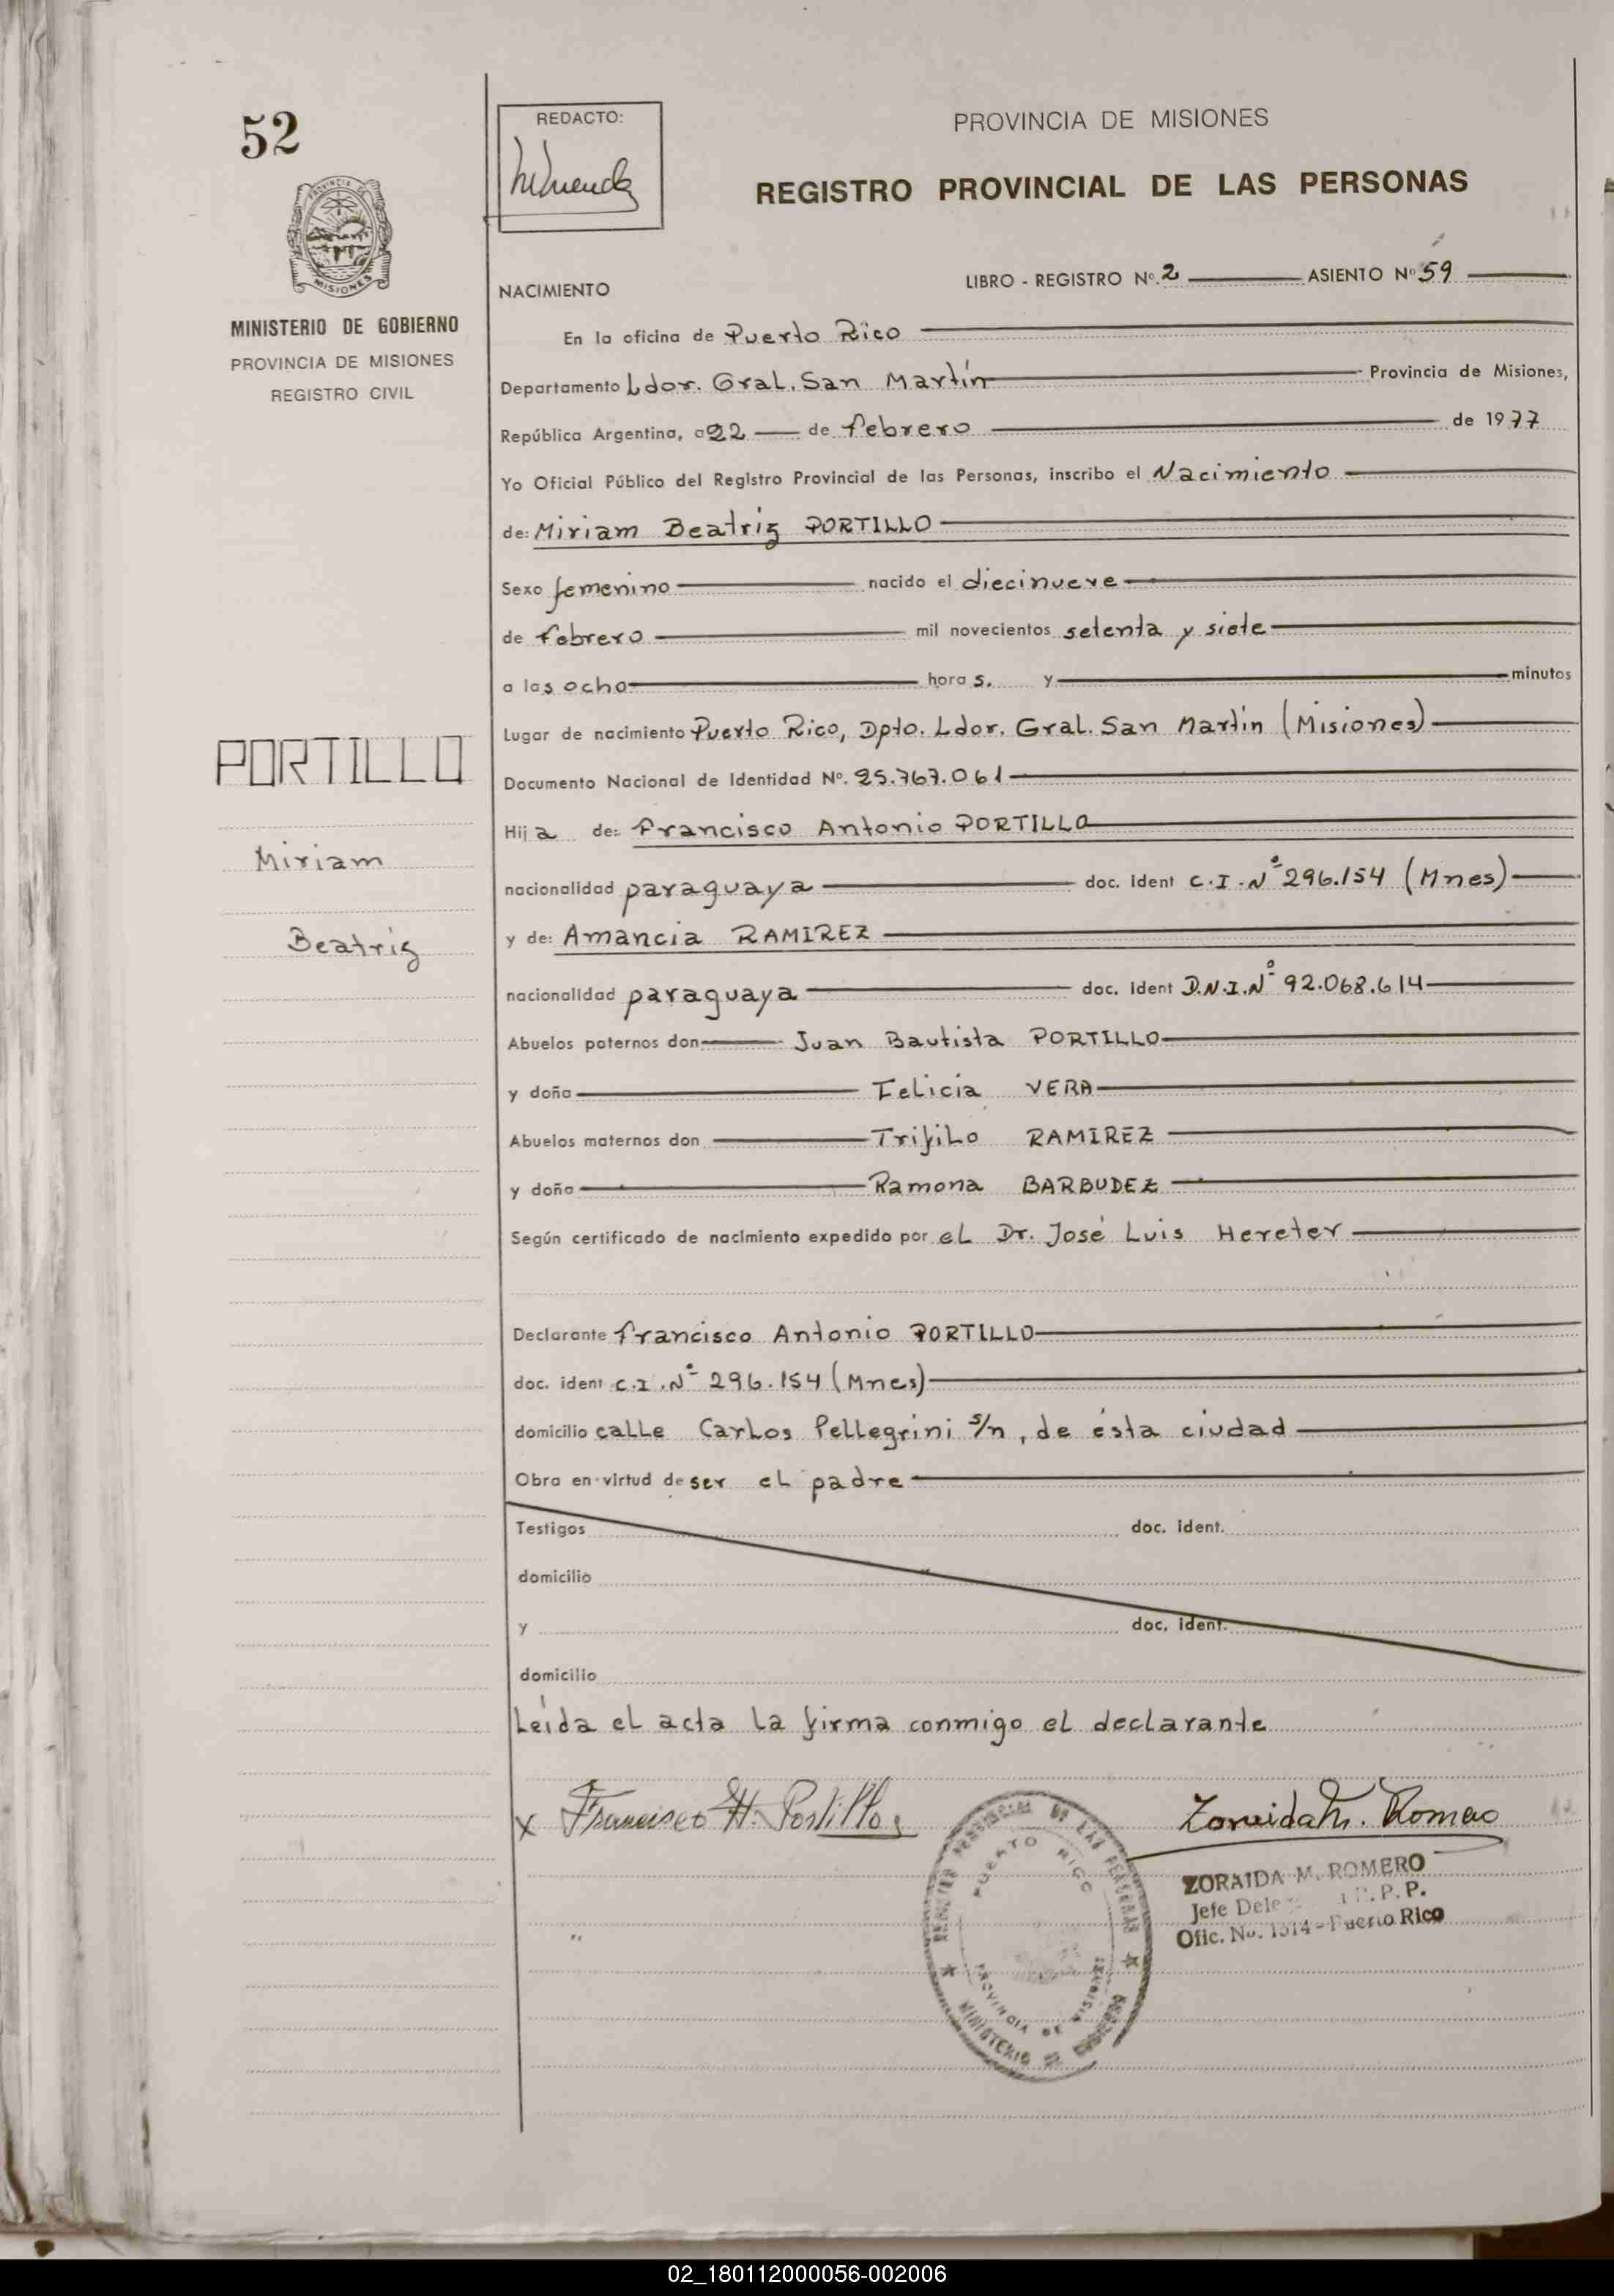 52
REDACTO:
PROVINCIA DE MISIONES
REGISTRO PROVINCIAL DE LAS PERSONAS
PROVINCIA DE
MISIONES
MINISTERIO DE GOBIERNO
PROVINCIA DE MISIONES
REGISTRO CIVIL
LIBRO - REGISTRO Nº. 2 ASIENTO Nº 59
NACIMIENTO
En la oficina de Puerto Rico
Departamento Ldor. Gral. San Martín Provincia de Misiones,
República Argentina, a 22 de febrero de 1977
Yo Oficial Público del Registro Provincial de las Personas, inscribo el Nacimiento
de: Miriam Beatriz PORTILLO
Sexo femenino nacido el diecinueve
de febrero mil novecientos setenta y siete
a las ocho hora s. y minutos
Lugar de nacimiento Puerto Rico, Dpto. Ldor. Gral. San Martín (Misiones)
PORTILLO
Miriam
Beatriz
Documento Nacional de Identidad Nº. 25.767.061
Hij a de: Francisco Antonio PORTILLO
nacionalidad paraguaya doc. Ident C.I.Nº 296.154 (Mnes)
y de: Amancia RAMIREZ
nacionalidad paraguaya doc. Ident D.N.I.Nº 92.068.614
Abuelos paternos don Juan Bautista PORTILLO
y doña Felicia VERA
Abuelos maternos don Trifilo RAMIREZ
y doña Ramona BARBUDEZ
Según certificado de nacimiento expedido por el Dr. José Luis Hereter
Declarante Francisco Antonio PORTILLO
doc. ident C.I.Nº 296.154 (Mnes)
domicilio calle Carlos Pellegrini s/n, de ésta ciudad
Obra en virtud de ser el padre
Testigos doc. ident.
domicilio
y doc. ident.
domicilio
Leída el acta la firma conmigo el declarante
x Francisco A. Portillo
Zoraida M. Romero
REGISTRO PROVINCIAL DE LAS PERSONAS
PUERTO RICO
PROVINCIA DE MISIONES
MINISTERIO DE GOBIERNO
ZORAIDA M. ROMERO
Jefe R.P.P.
Ofic. No. 1314 - Puerto Rico
02_180112000056-002006